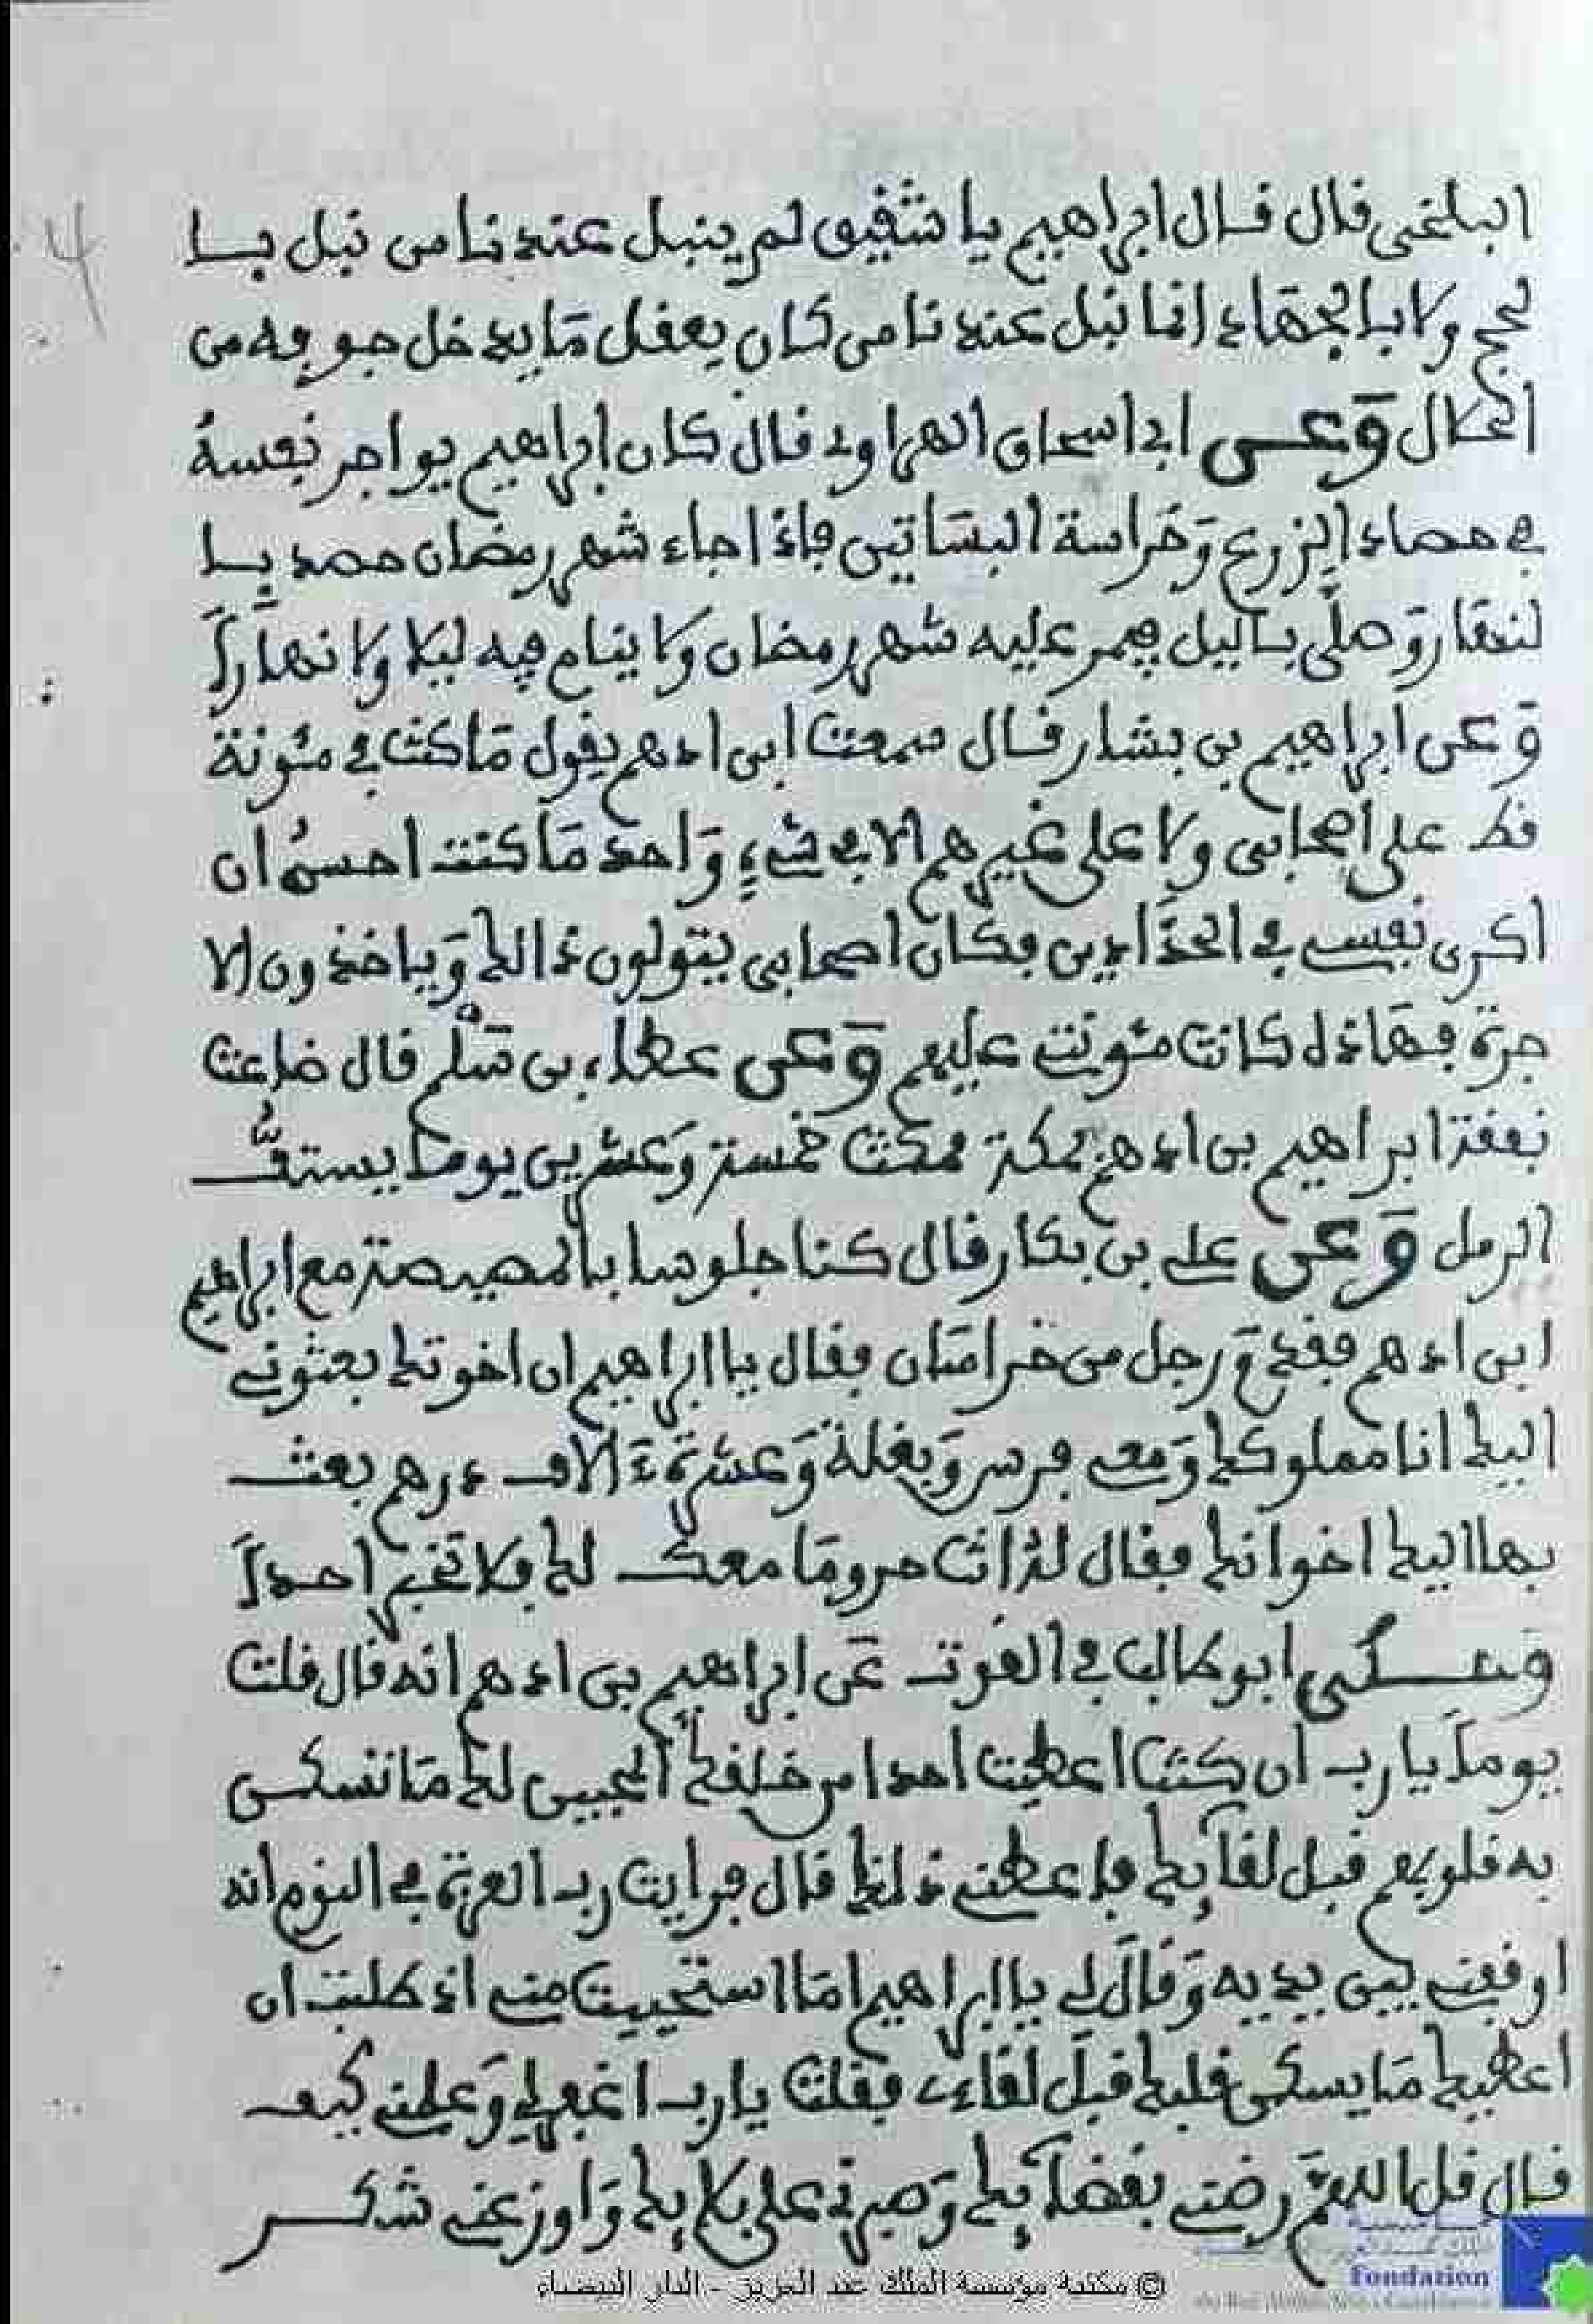 البلخى قال قال ابراهيم يا شقيق لم ينبل عندنا من نبل با
لحج ولا بالجهاد انما نبل عندنا من كان يعقل ما يدخل جوفه من
الحلال وعن ابي اسحاق الهراوي قال كان ابراهيم يواجر نفسه
في حصاد الزرع وحراسة البساتين فاذا جاء شهر رمضان حصد با
لنهار وصلى باليل فيمر عليه شهر رمضان ولا ينام فيه ليلا ولا نهارا
وعن ابراهيم بن بشار قال سمعت ابن ادهم يقول ما كنت في مئونة
قط على اصحابي ولا على غيرهم الا في شيء واحد ما كنت احسن ان
اكرى نفسي في الحذادين فكان اصحابي يتولون ذالك وياخذون الا
جرة فهاذه كانت مئونتي عليهم وعن عطاء بن سلم قال ضاعت
نفقة ابراهيم بن ادهم بمكة فمكث خمسة وعشرين يوما يستف
الرمل وعن علي بن بكار قال كنا جلوسا بالمصيصة مع ابراهيم
ابن ادهم فقدم رجل من خراسان فقال يا ابراهيم ان اخوتك بعثوني
اليك انا مملوكك ومعي فرس وبغلة وعشرة ءالاف درهم بعث
بها اليك اخوانك فقال له انت حر وما معك لك فلا تخبر احدا
وحكى ابو طالب في القوت عن ابراهيم بن ادهم انه قال قلت
يوما يا رب ان كنت اعطيت احدا من خلقك المحبين لك ما تسكن
به قلوبهم قبل لقآيك فاعطني ذلك قال فرايت رب العزة في النوم انه
اوقفني بين يديه وقال لي يا ابراهيم اما استحييت مني اذ طلبت ان
اعطيك ما يسكن قلبك قبل لقاءي فقلت يا رب اغفر لي وعلمني كيف
قال قل اللهم رضني بقضآيك وصبرني على بلايك واوزعني شكر
© مكتبة مؤسسة الملك عبد العزيز - الدار البيضاء
Fondation